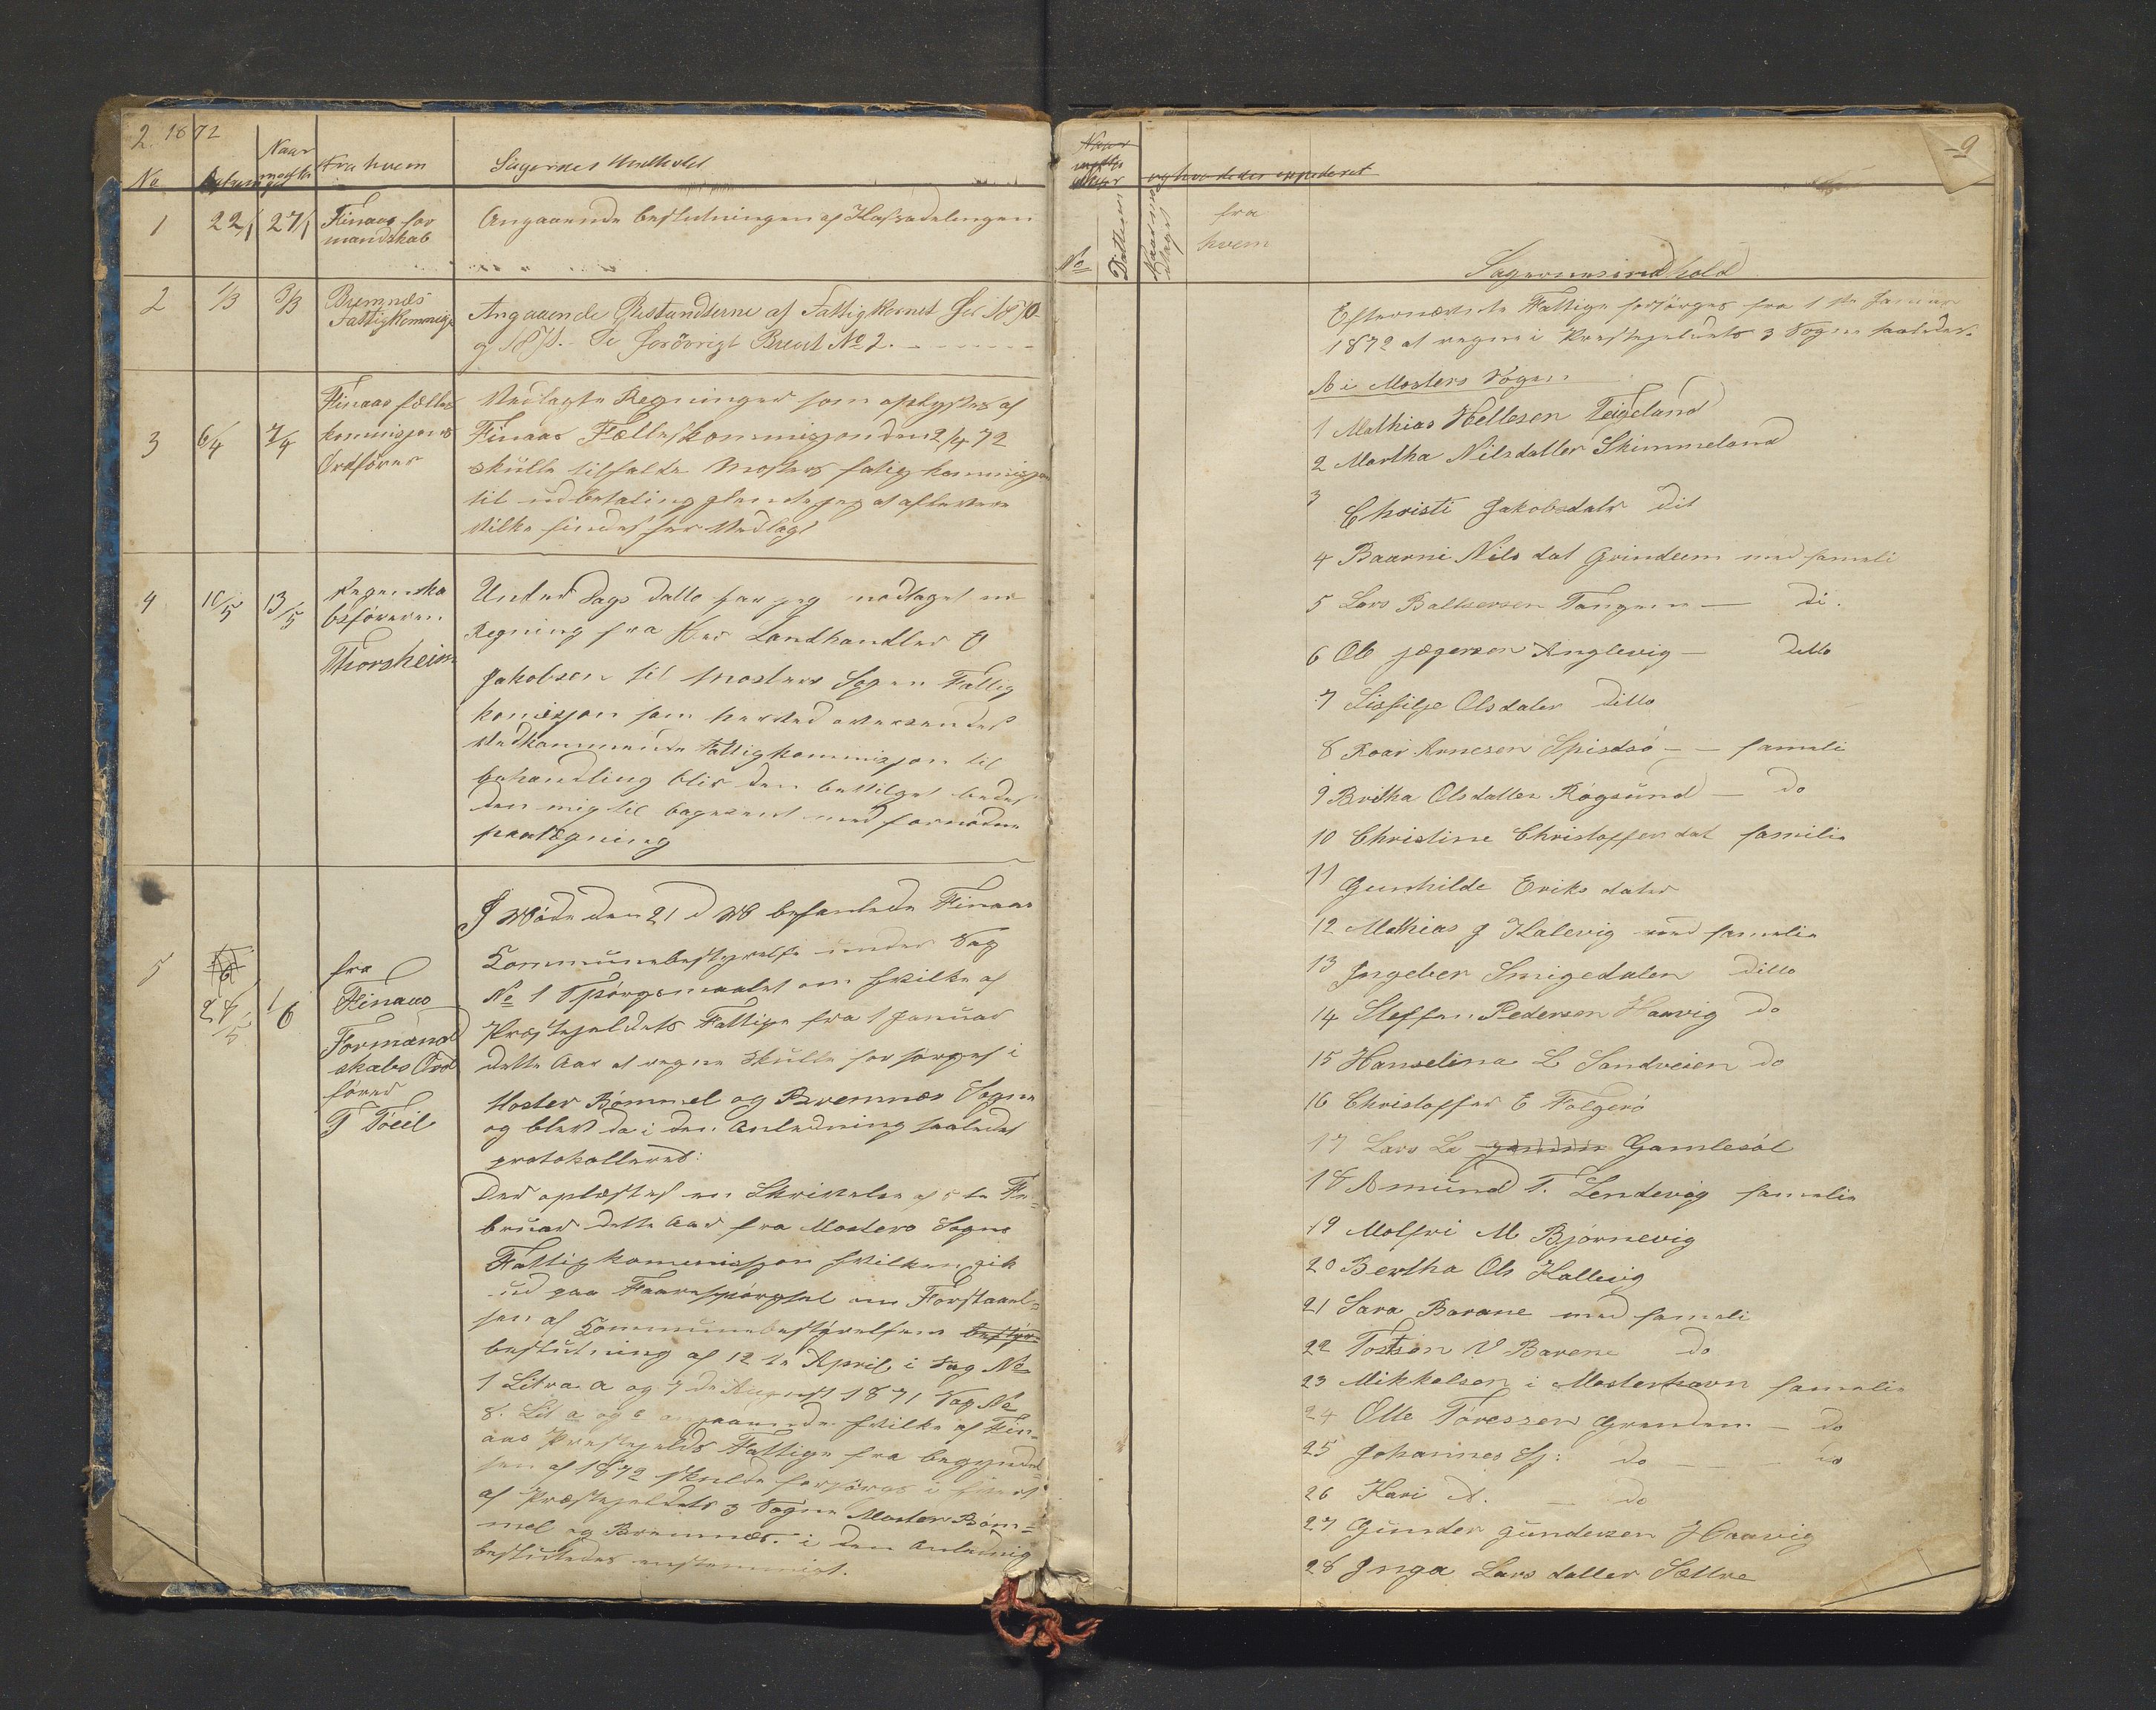 2. 1872
No
Datum
Naar
modta
get
Fra hvem
Sagernes Indhold
1
22/1
27/1
Finaas for
mandskab
Angaaende beslutningen af Kassadelingen
2
1/3
3/3
Bremnæs
Fattigkommisj
Angaaende Restandserne af Fattigkornet for 1870
og 1871. Se forøvrigt Brevet No 2.
3
6/4
7/4
Finaas fælles
kommisjons
Ordfører
Vedlagte Regninger som oplystes af
Finaas Fælleskommisjon den 2/4 72
skulle tilfalde Mosters fatigkommisjon
til udbetaling
vilke findes her Vedlagt
4
10/5
13/5
Regnska
bsføreren
Thorsheim
Under Dags Datto har jeg modtaget en
Regning fra Her Landhandler O
Jakobsen til Mosters Sogn Fattig
komisjon som herved oversendes
Vedkommende Fattigkommisjon til
behandling blir den bevilget bedes
den mig til bagesent med fornøden
paategning
5
28/5
1/6
fra
Finaas
Formand
skabs Ord
fører
T Tøeil
I Møde den 21 d M behandlede Finaas
Kommunebestyrelse under Sag
No 1 Spørgsmaalet om hvilke af
Præstegjeldets Fattige fra 1 Januar
dette Aar at regne skulle forsørges i
Moster Bømmel og Bremnæs Sogne
og blev da i den Anledning saaledes
protokolleret:
Der oplæstes en Skrivelse af 5te Fe-
bruar dette Aar fra Mosters Sogns
Fattigkommisjon hvilken gik
ud paa Foorespørgsel om Forstaael-
sen af Kommunebestyrelsens bestyr-
beslutning af 12te April i Sag No
1 Litra a og 7de August 1871 Sag No
8. Lit a og angaaende hvilke af Fin-
aas Præstegjelds Fattige fra begyndel-
sen af 1872 skulde forsørges i hvert
af Præstegjeldets 3 Sogne Moster Bøm-
mel og Bremnæs. i den Anledning
besluttedes enstemmigt.
2
Naar
og hvorledes expederet
No
Datum
fra
hvem
Sagernes indhold
Efternævnte Fattige forsørges fra 1ste Januar
1872 at regne i Præstegjeldets 3 Sogne saaledes.
A i Mosters Sogn
1 Mathias Hellesen Teigeland
2 Martha Nilsdatter Skimmeland
3 Christi Jakobsdatr dit
4 Baarni Nils dat Grindeem med fameli
5 Lars Baltsersen Tangen — di.
6 Ole jægersen Anglevig — ditto
7 Sisfilje Olsdater ditto
8 Roar Arnesen Spisdsø — — fameli
9 Britha Olsdatter Røgsund — do
10 Christine Christoffersdat familie
11 Gunhilde Eriks dater
12 Mathias J Kalevig med famelie
13 Ingeber Smigedalen ditto
14 Steffen Pedersen Haavig do
15 Hanselina L Sandveien do
16 Christoffer E Folgerø
17 Lars La Gamlesøl
18 Amund T. Lendevåg famelie
19 Molfri M Bjørnevig
20 Bertha Ols Kallevig
21 Sara Barane med fameli
22 Tostsøn V Barene do
23 Mikkelsen i Mosterhavn famelie
24 Olle Tøressen Grendem — do
25 Johannes Ej: do — — do
26 Kari A. — do
27 Gunder gundersen Haavig
28 Inga Lars datter Sættre